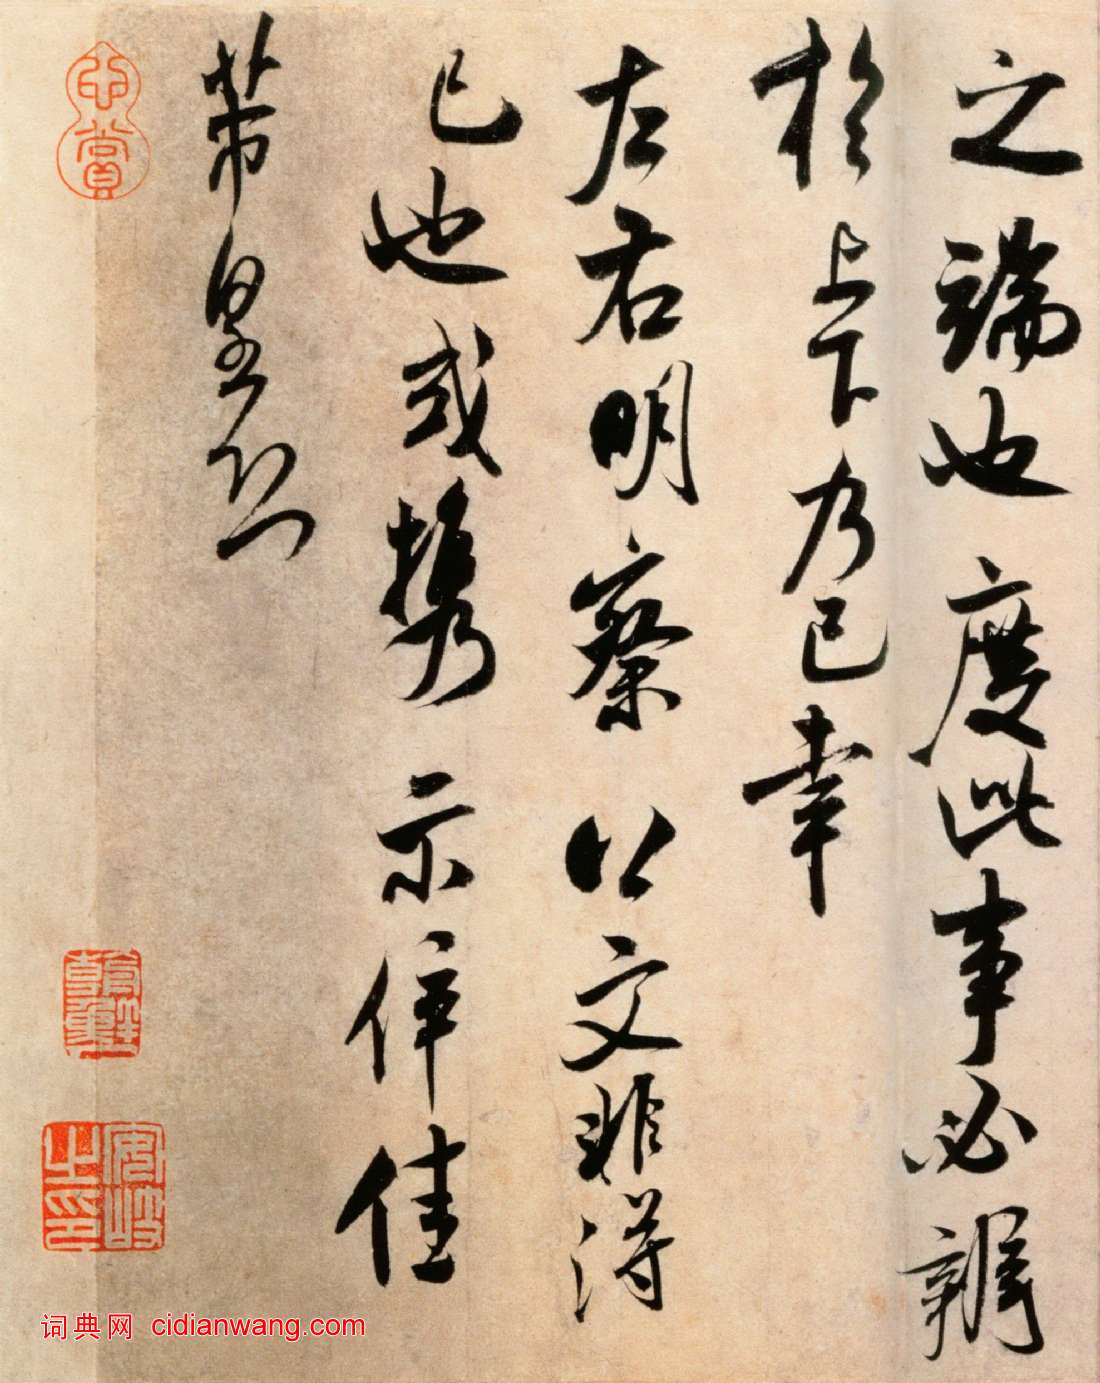 之端也度此事必辦
於上下乃已幸
左右明察公文非得
已也或攜示倅佳
芾皇恐
賞
之印
词典网 cidianwang.com